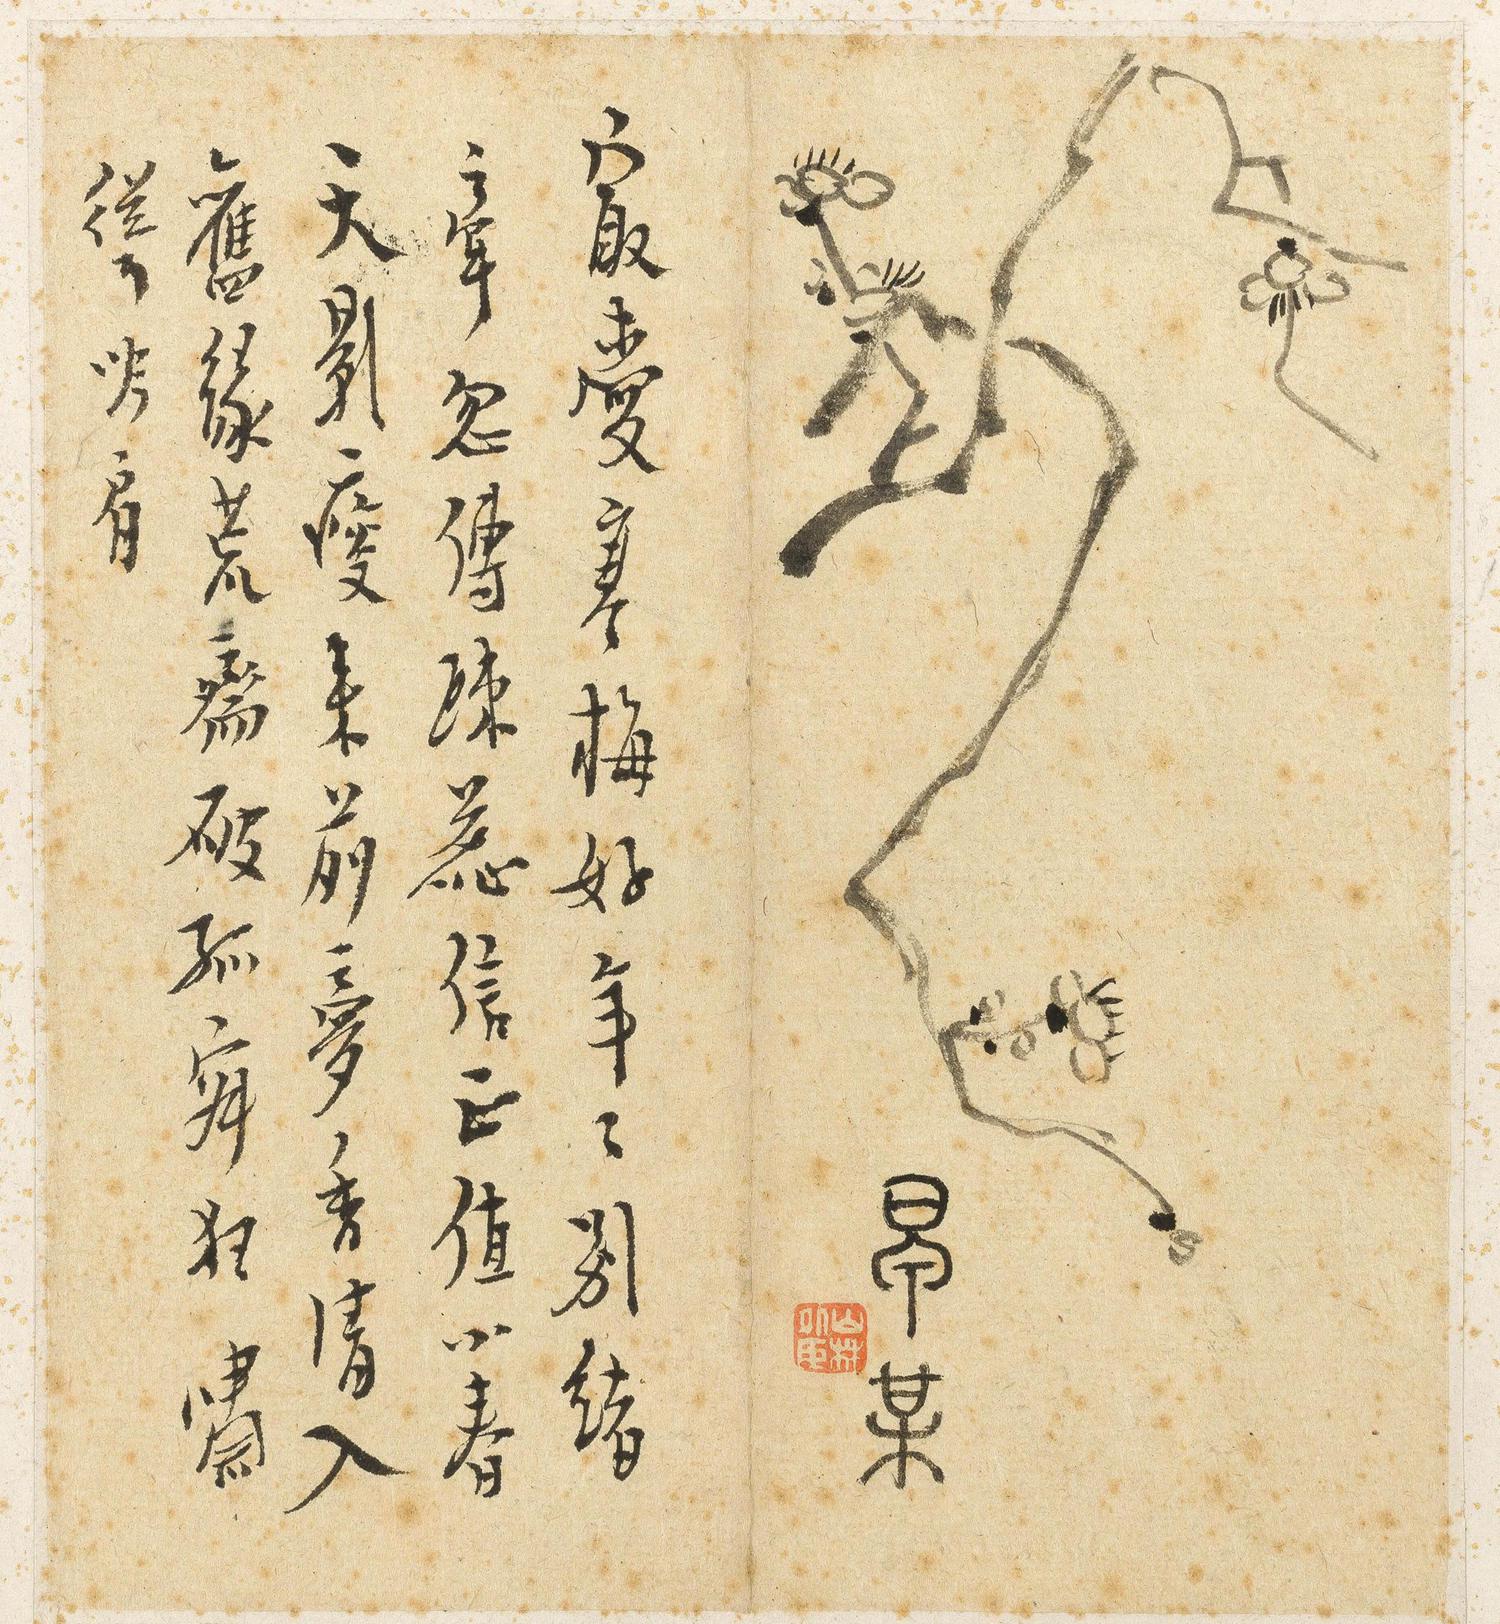 早某
山林外臣
最愛寒梅好年〻別緒
牽忽傳疎蕊信正值小春
天影瘦來前夢香清入
舊緣荒齋破孤寂狂嘯
聳吟肩